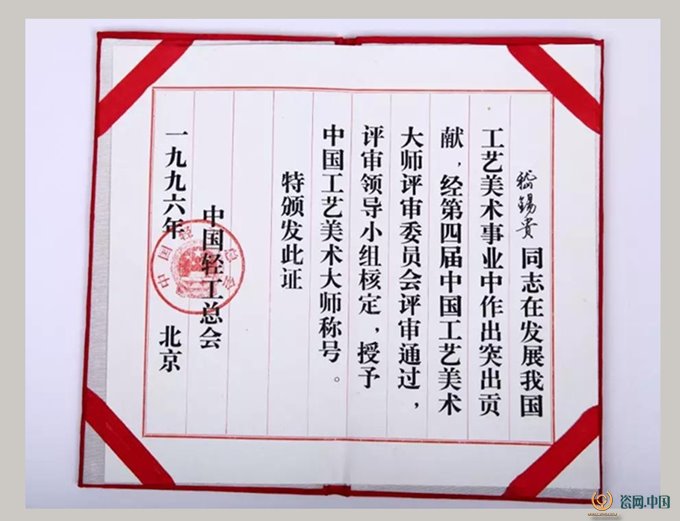 嵇锡贵同志在发展我国
工艺美术事业中作出突出贡
献，经第四届中国工艺美术
大师评审委员会评审通过，
评审领导小组核定，授予
中国工艺美术大师称号。
特颁发此证
中国轻工总会
一九九六年 北京
中国轻工总会
瓷网.中国